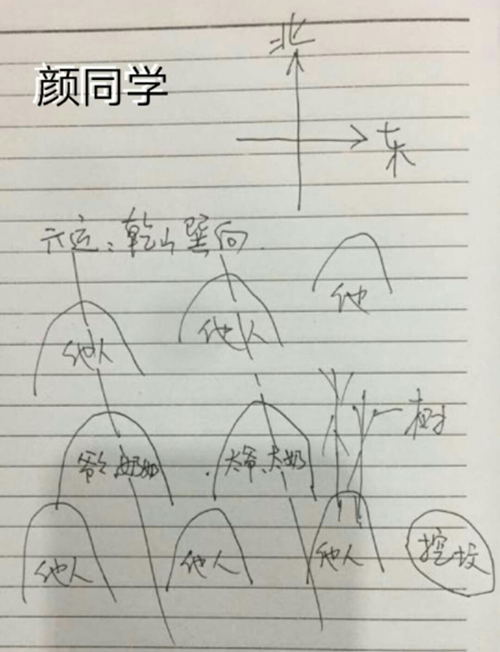 北
颜同学
东
六运:乾山巽向
他
他人
他人
树
爷爷、奶奶
大爷、大奶
他人
他人
他人
挖坟